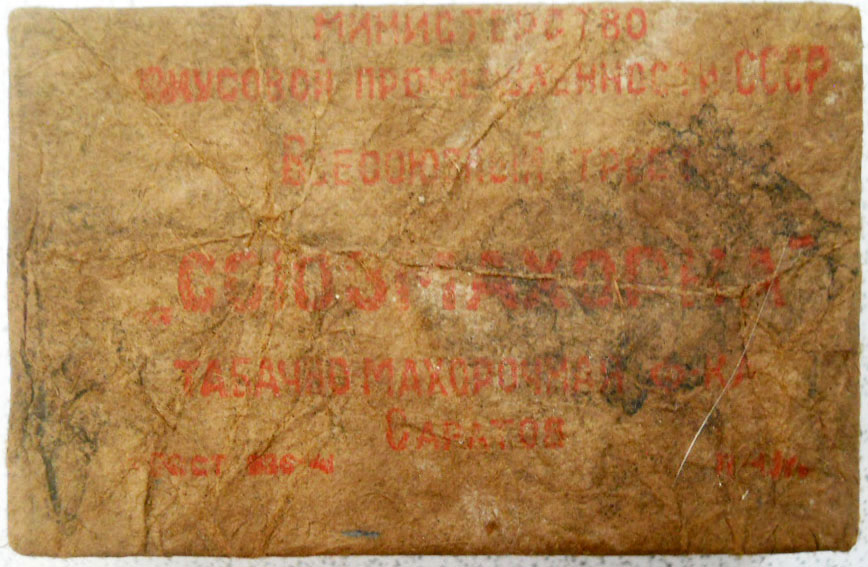 МИНИСТЕРСТВО
ВКУСОВОЙ ПРОМЫШЛЕННОСТИ СССР
ВСЕСОЮЗНЫЙ ТРЕСТ
„СОЮЗМАХОРКА"
ТАБАЧНО МАХОРОЧНАЯ Ф-КА
САРАТОВ
ГОСТ